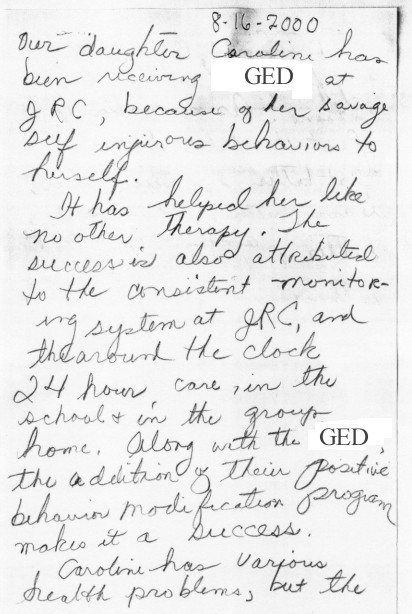 8-16-2000
Our daughter Caroline has
been receiving GED at
JRC, because of her savage
self injurous behaviors to
herself.
It has helped her like
no other therapy. The
success is also attributed
to the consistent monitor-
ing system at JRC, and
the around the clock
24 hour care, in the
school & in the group
home. Along with the GED,
the addition of their positive
behavior modification program
makes it a success.
Caroline has various
health problems, but the